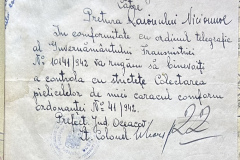 Către
Pretura Raionului
In conformitate cu ordinul telegrafic
al Guvernământului Transnistriei
No 10141/942 va rugăm să binevoiți
a controla cu strictețe Colectarea
pielicelelor de miei caracul conform
ordonanței No 41/942.
Prefect Jud. Oceacov
Lt. Colonel
22